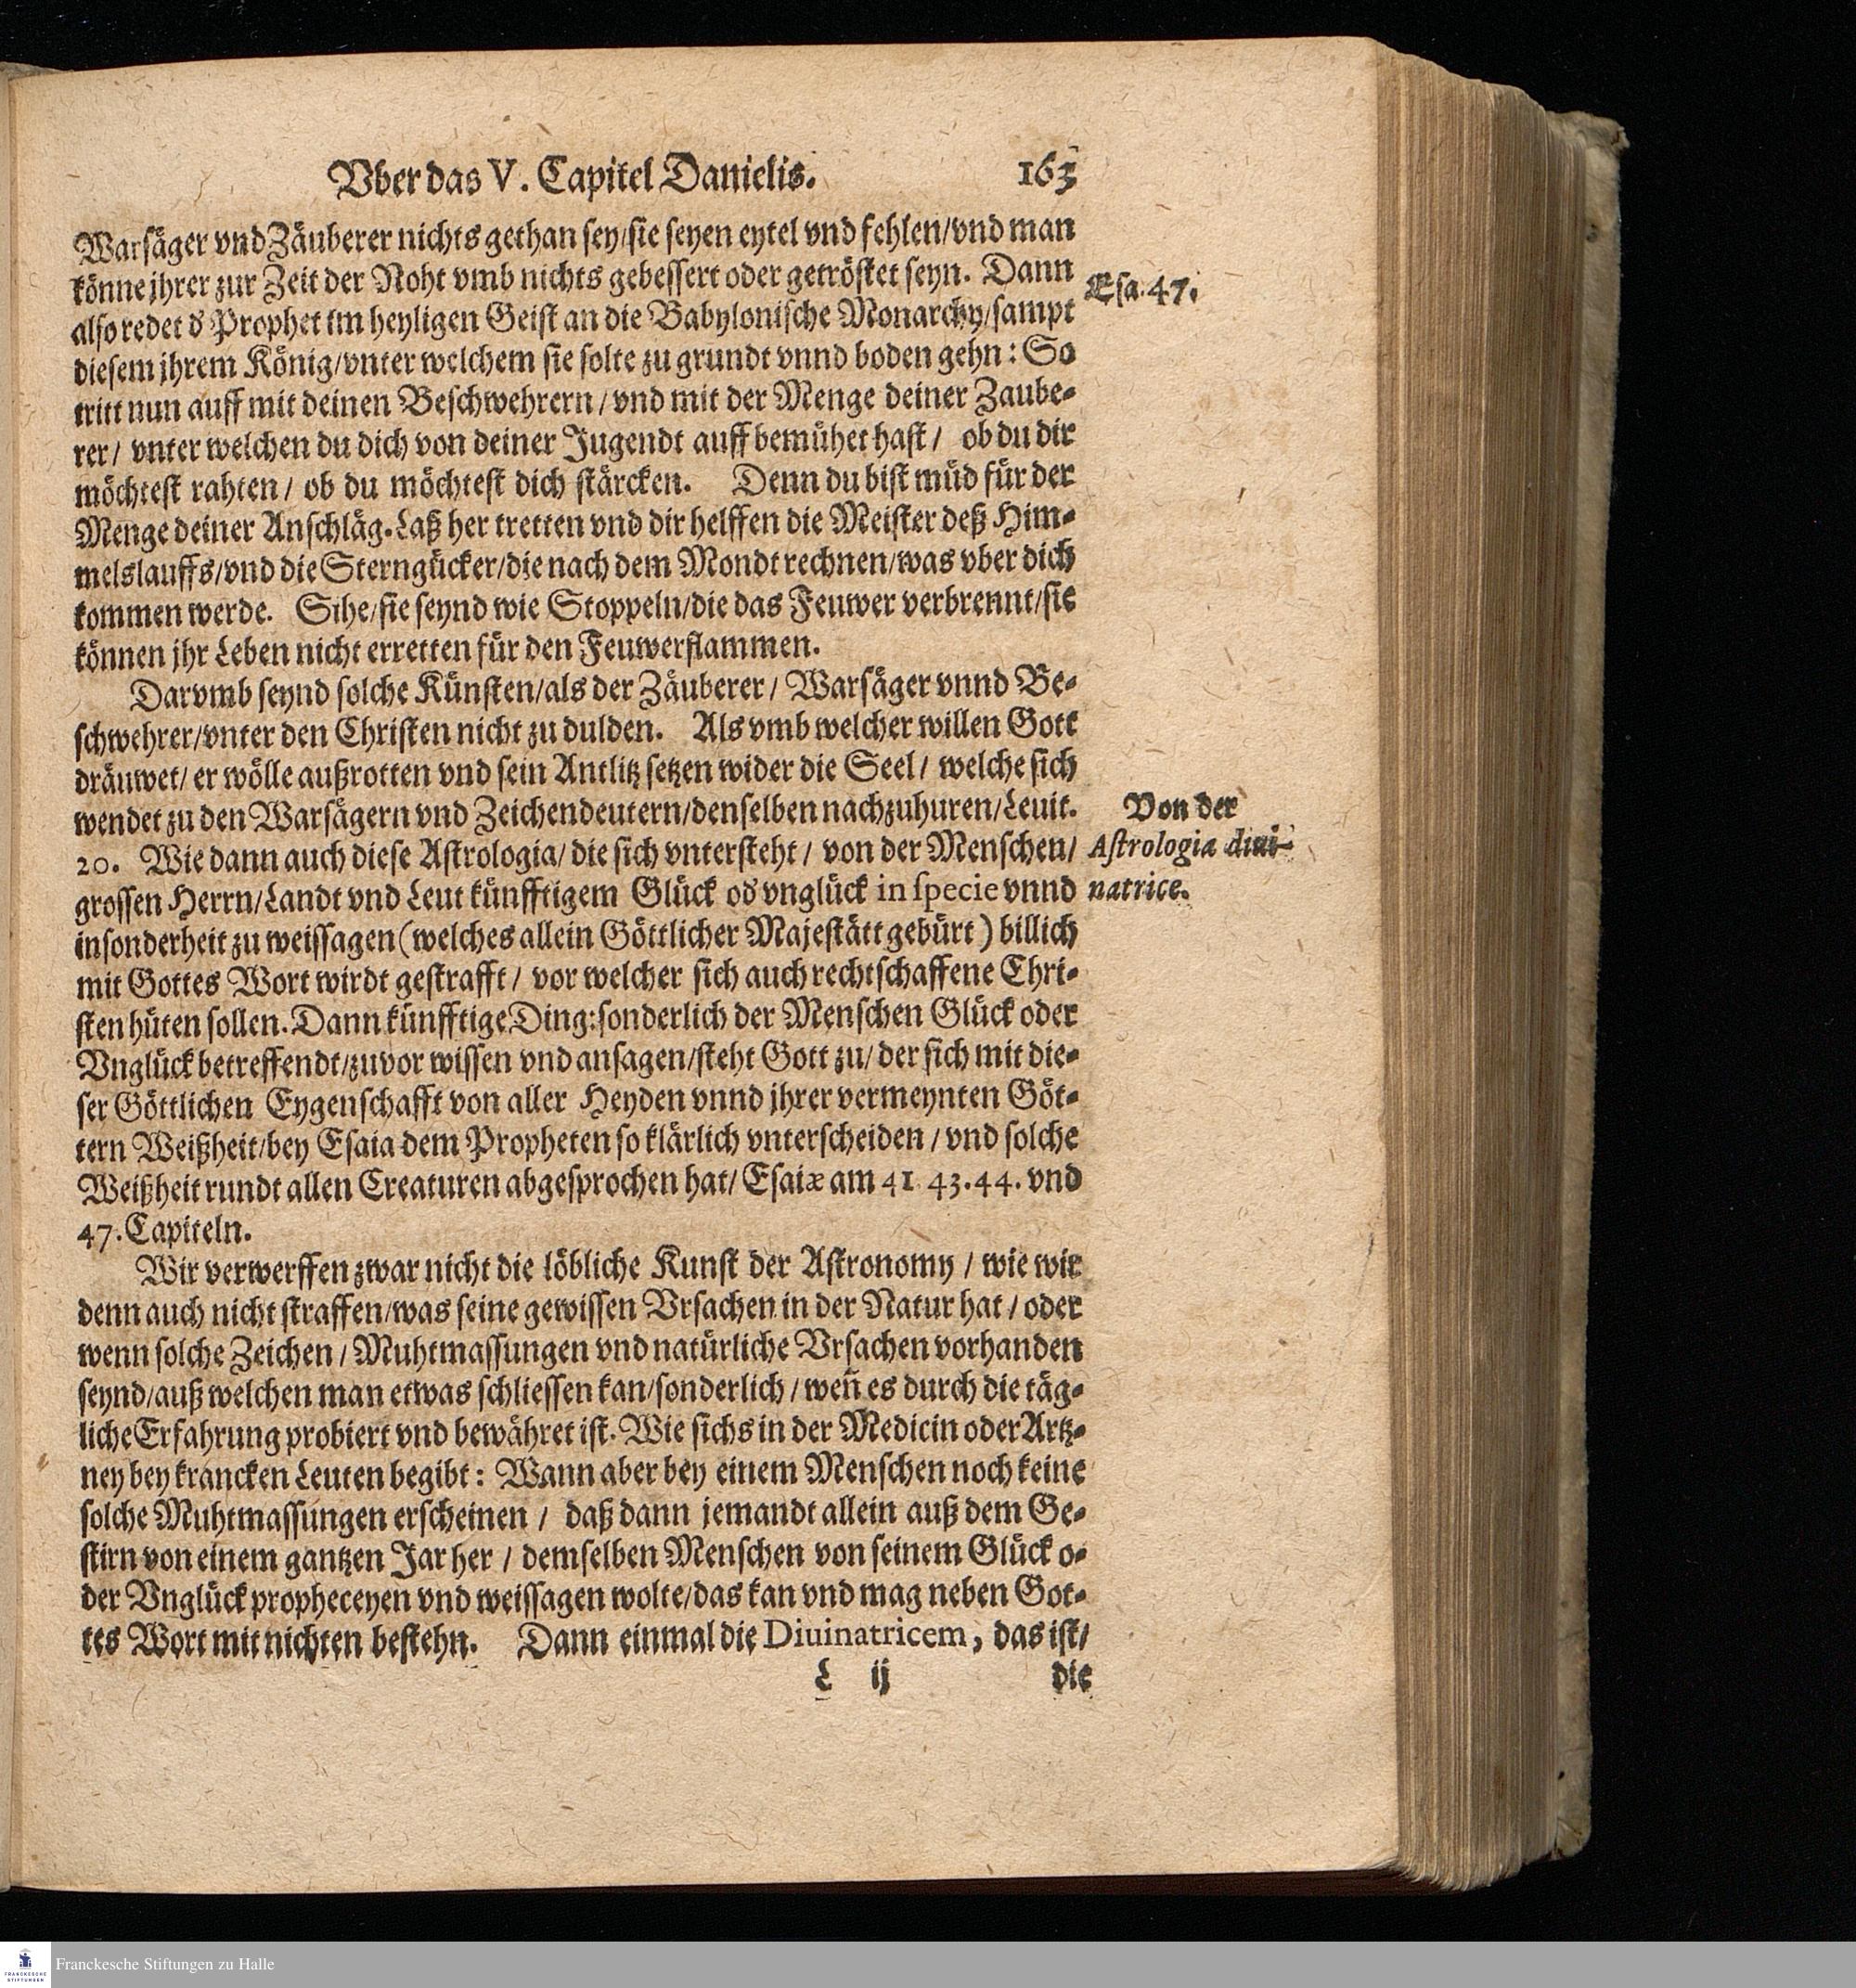 Vber das V. Capitel Danielis. 163
Warsäger vnd Zäuberer nichts gethan sey/sie seyen eytel vnd fehlen/vnd man
könne jhrer zur Zeit der Noht vmb nichts gebessert oder getröstet seyn. Dann
also redet d' Prophet im heyligen Geist an die Babylonische Monarchy/sampt
diesem jhrem König/vnter welchem sie solte zu grundt vnnd boden gehn: So
tritt nun auff mit deinen Beschwehrern/vnd mit der Menge deiner Zaube-
rer/ vnter welchen du dich von deiner Jugendt auff bemühet hast/ ob du dir
möchtest rahten/ ob du möchtest dich stärcken. Denn du bist müd für der
Menge deiner Anschläg. Laß her tretten vnd dir helffen die Meister deß Him-
melslauffs/vnd die Sterngücker/die nach dem Mondt rechnen/was vber dich
kommen werde. Sihe/sie seynd wie Stoppeln/die das Feuwer verbrennt/sie
können jhr Leben nicht erretten für den Feuwerflammen.
Darvmb seynd solche Künsten/als der Zäuberer/ Warsäger vnnd Be-
schwehrer/vnter den Christen nicht zu dulden. Als vmb welcher willen Gott
dräuwet/ er wölle außrotten vnd sein Antlitz setzen wider die Seel/ welche sich
wendet zu den Warsägern vnd Zeichendeutern/denselben nachzuhuren/Leuit.
20. Wie dann auch diese Astrologia/ die sich vntersteht/ von der Menschen/
grossen Herrn/Landt vnd Leut künfftigem Glück od' vnglück in specie vnnd
insonderheit zu weissagen (welches allein Göttlicher Majestätt gebürt) billich
mit Gottes Wort wirdt gestrafft/ vor welcher sich auch rechtschaffene Chri-
sten hüten sollen. Dann künfftige Ding: sonderlich der Menschen Glück oder
Vnglück betreffendt/zuvor wissen vnd ansagen/steht Gott zu/ der sich mit die-
ser Göttlichen Eygenschafft von aller Heyden vnnd jhrer vermeynten Göt-
tern Weißheit/bey Esaia dem Propheten so klärlich vnterscheiden/ vnd solche
Weißheit rundt allen Creaturen abgesprochen hat/ Esaiæ am 41. 43. 44. vnd
47. Capiteln.
Wir verwerffen zwar nicht die löbliche Kunst der Astronomy/ wie wir
denn auch nicht straffen/was seine gewissen Vrsachen in der Natur hat/ oder
wenn solche Zeichen/ Muhtmassungen vnd natürliche Vrsachen vorhanden
seynd/auß welchen man etwas schliessen kan/sonderlich/ weñ es durch die täg-
liche Erfahrung probiert vnd bewähret ist. Wie sichs in der Medicin oder Artz-
ney bey krancken Leuten begibt: Wann aber bey einem Menschen noch keine
solche Muhtmassungen erscheinen/ daß dann jemandt allein auß dem Ge-
stirn von einem gantzen Jar her/ demselben Menschen von seinem Glück o-
der Vnglück propheceyen vnd weissagen wolte/das kan vnd mag neben Got-
tes Wort mit nichten bestehn. Dann einmal die Diuinatricem, das ist/
L ij die
Esa. 47.
Von der
Astrologia diui-
natrice.
Franckesche Stiftungen zu Halle
FRANCKESCHE
STIFTUNGEN